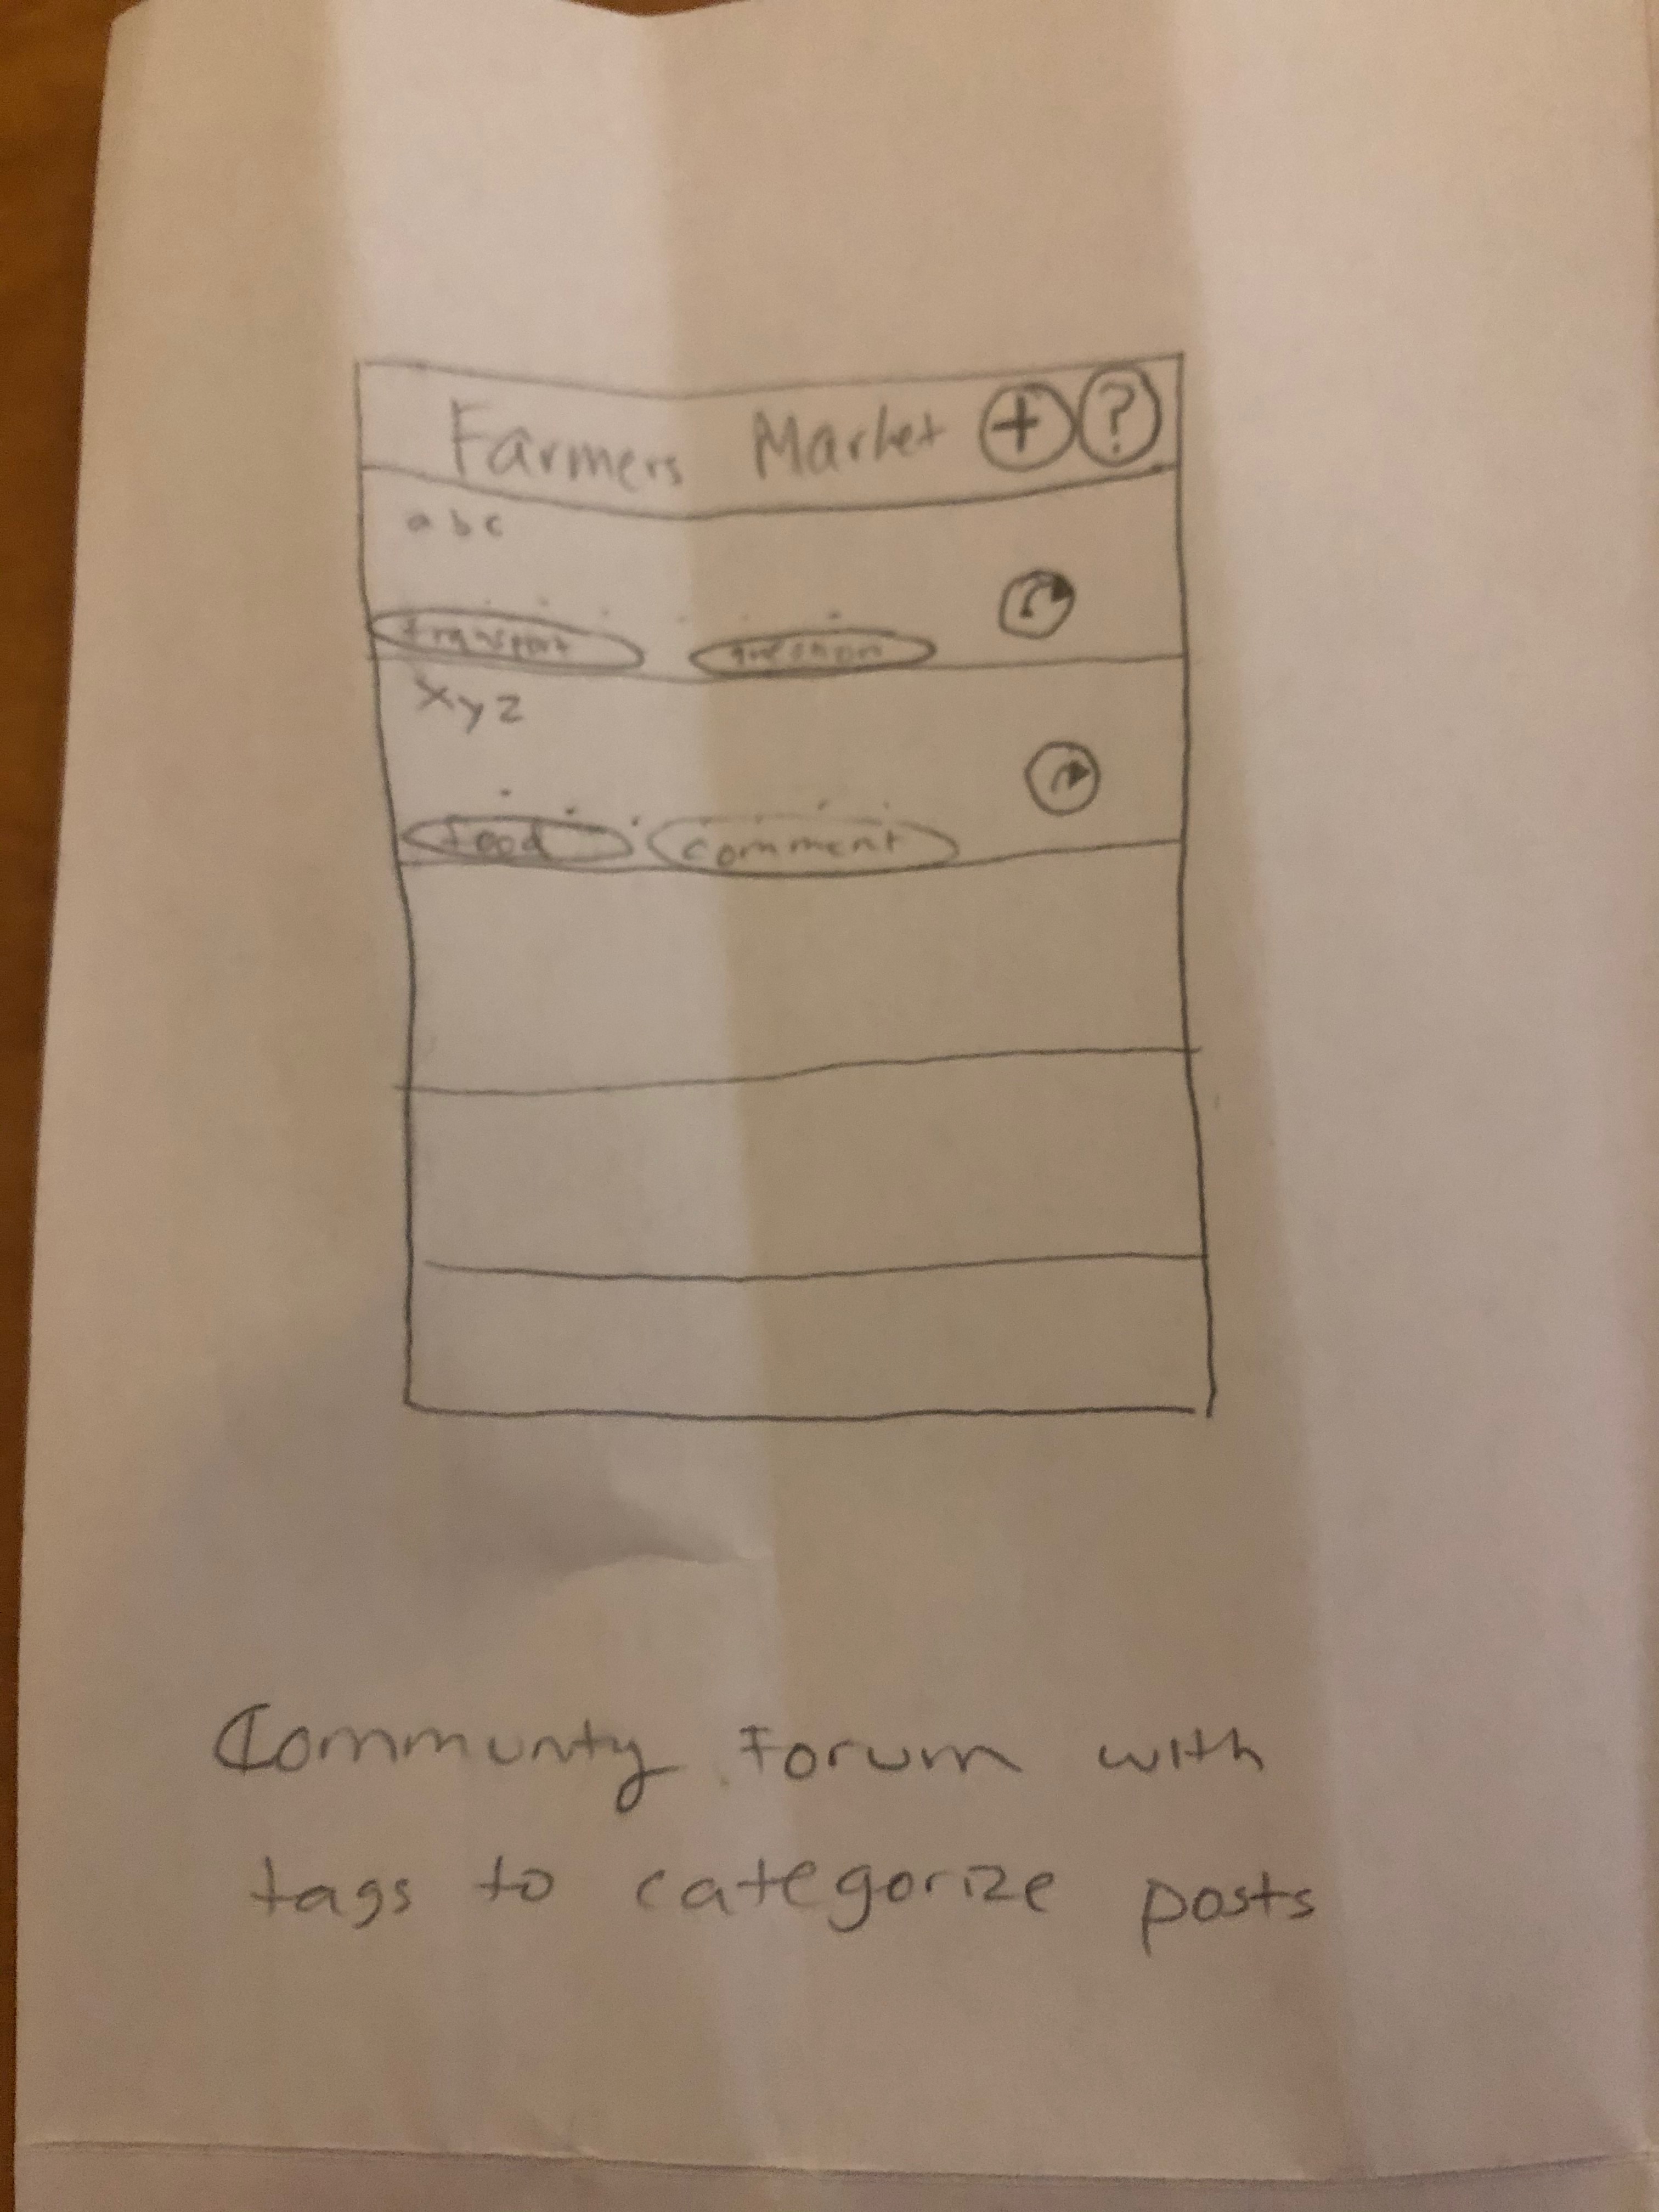 Farmers Market + ?
abc
transport question
xyz
food comment
Community Forum with
tags to categorize posts